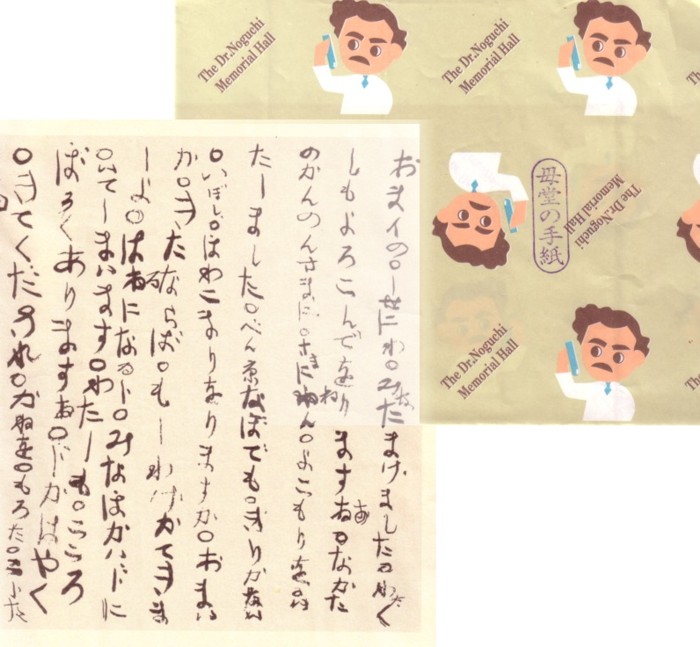 The Dr.Noguchi
Memorial Hall
The Dr.Noguchi
Memorial Hall
The Dr.Noguchi
Memorial Hall
The Dr.Noguchi
Memorial Hall
母堂の手紙
おまイの○しせにわ○みなたまけました○わたく
しもよろこんでをりまする○なかた
のかんのんさまに○さまにねん○よこもりを○い
たしました○べん京なぼでも○きりかない
○いぼし○ほわこまりをりますか○おまい
か○きたならば○もしわけかてきま
しよ○はるになるト○みなほかイドに
○いてしまいます○わたしも○こころ
ぼそくありまする○ドカはやく
○きてくだされ○かねを○もろた○こトた